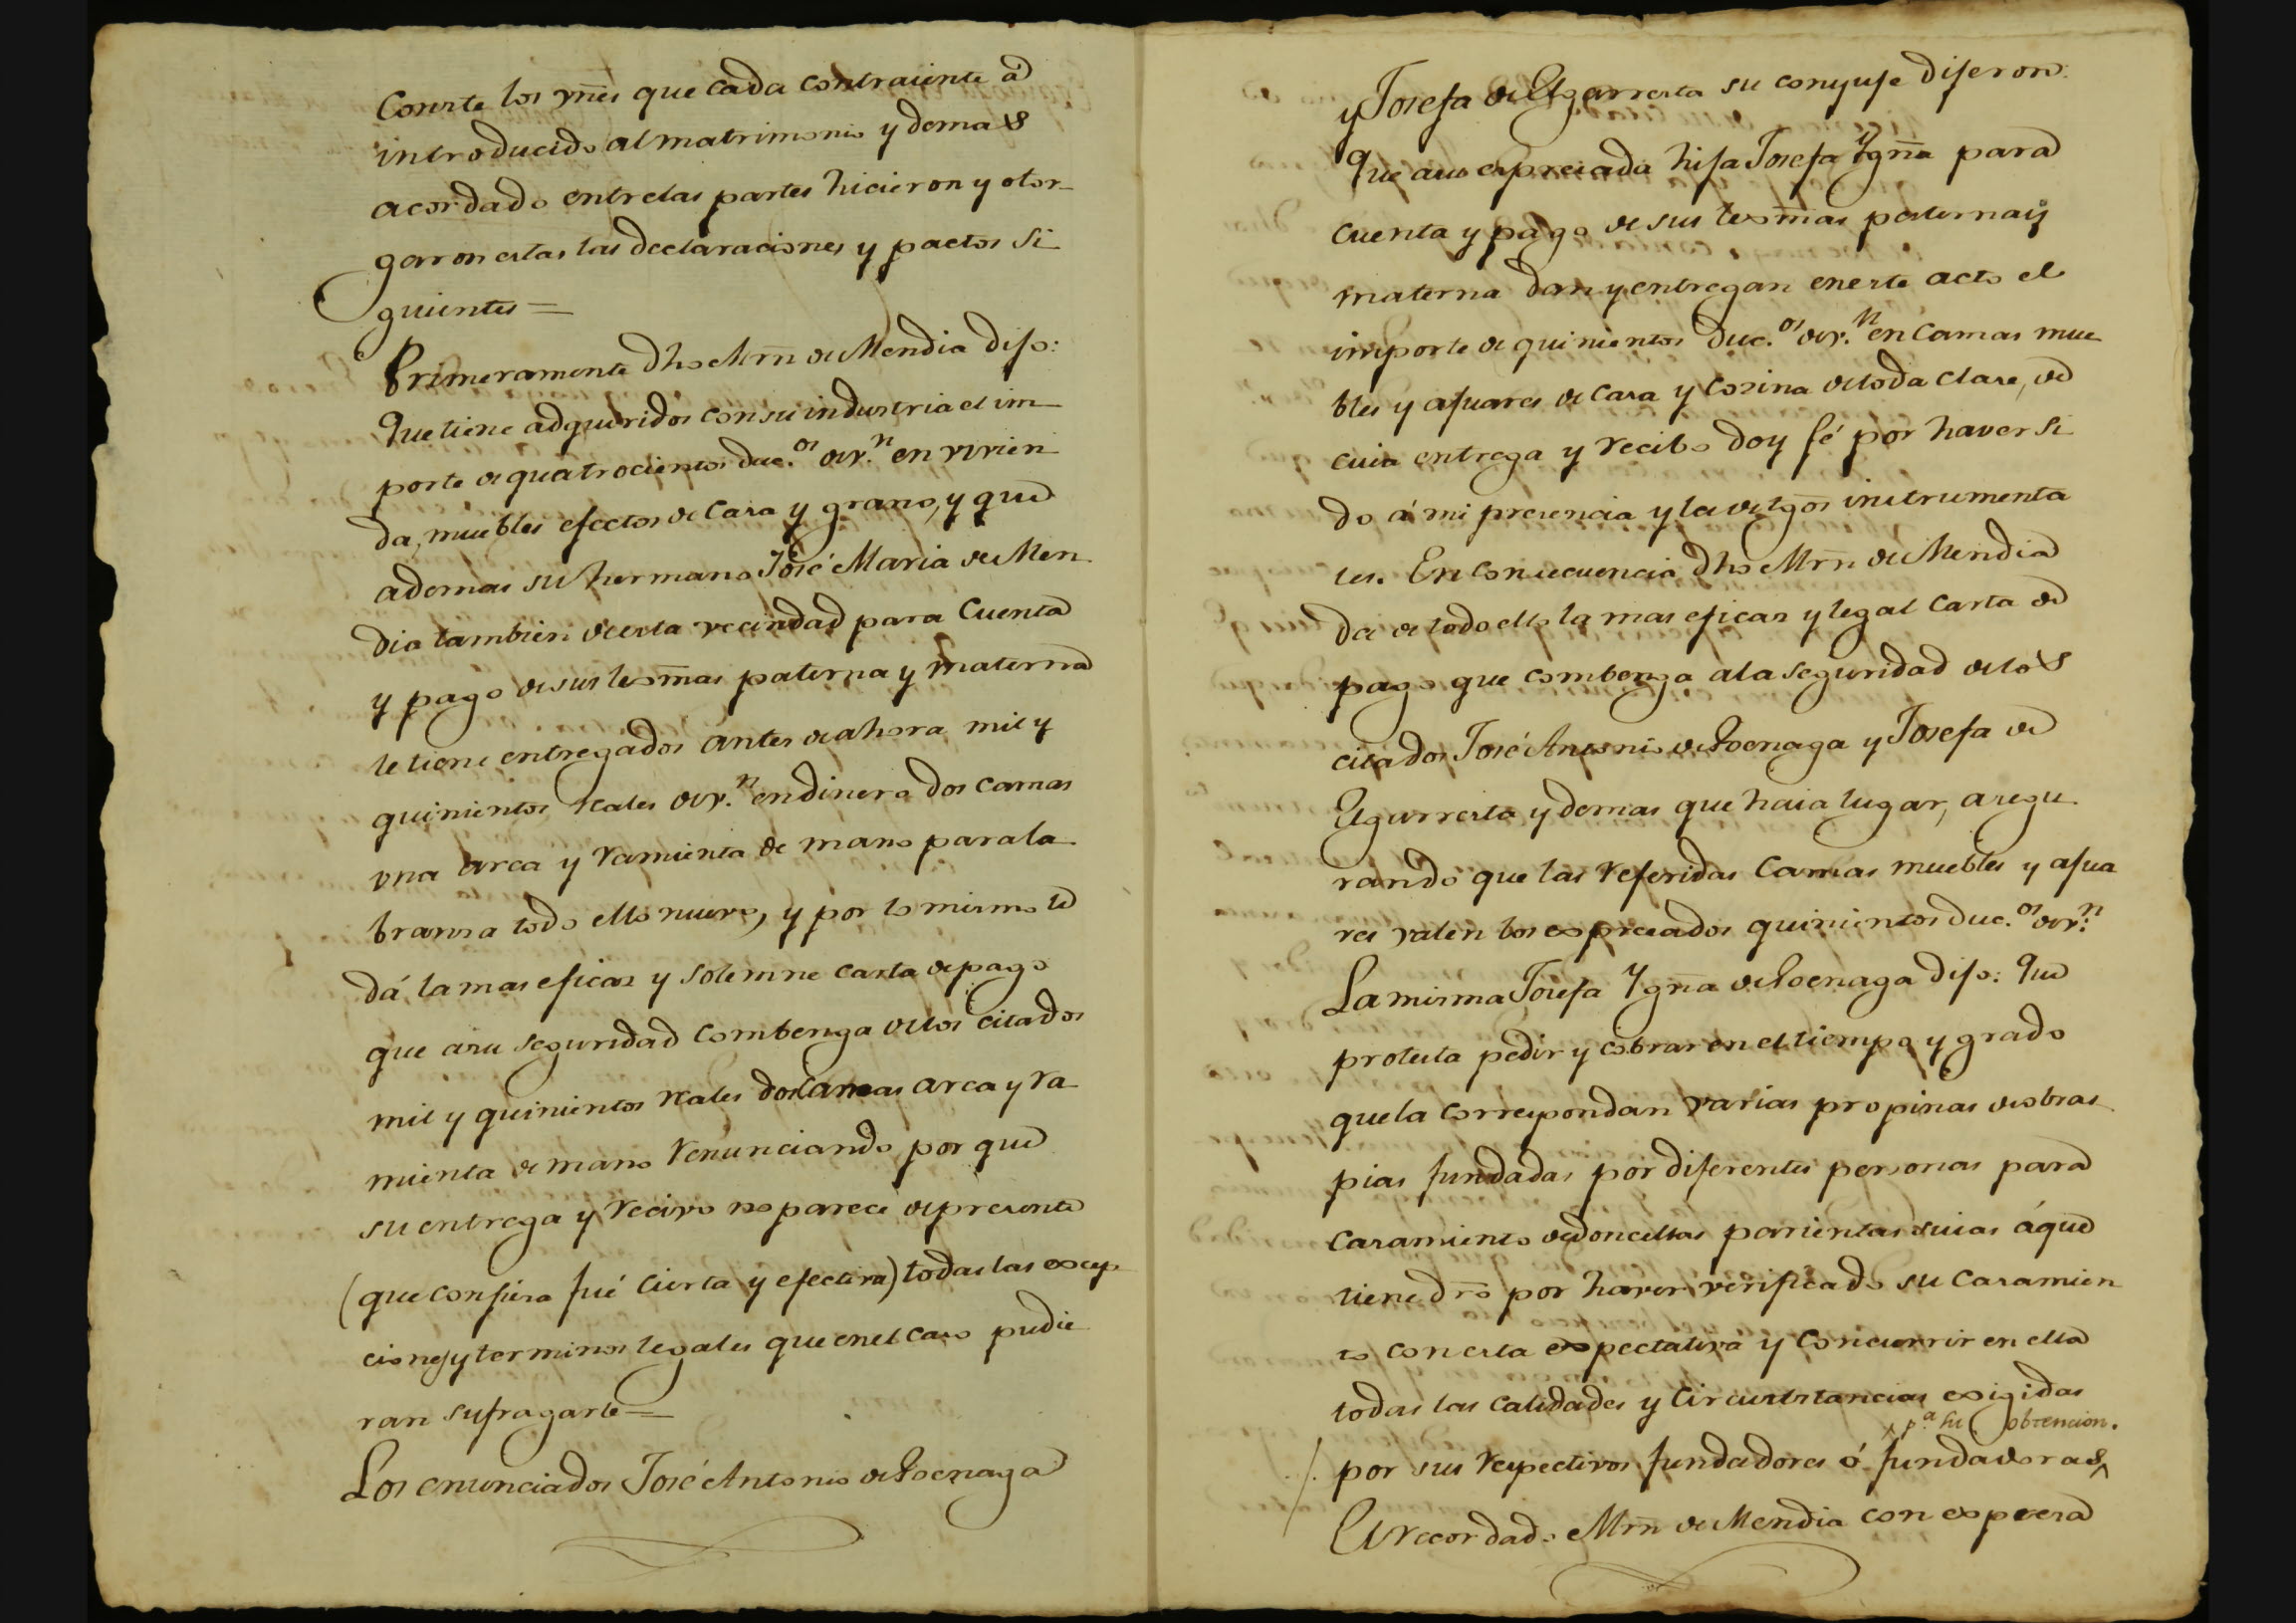 Conste los vn̄es que cada contraiente â
introducido al matrimonio y demas
acordado entre las partes hicieron y otor-
garon estas las declaraciones y pactos si-
guientes =
Primeramente dho Mrn̄ de Mendia dijo:
Que tiene adquiridos con su industria el im-
porte de quatrocientos duc.os de v.n en vivien-
da, muebles efectos de Casa y grano, y que
ademas su hermano José Maria de Men-
dia tambien de esta vecindad para Cuenta
y pago de sus lexm̄as paterna y materna
le tiene entregados antes de ahora mil y
quinientos reales de v.n en dinero dos camas
vna arca y ramienta de mano para la-
branza todo ello nuevo, y por lo mismo le
dá la mas eficaz y solemne carta de pago
que a su seguridad combenga de los citados
mil y quinientos reales dos camas arca y ra-
mienta de mano renunciando por que
su entrega y recivo no parece de presente
(que confiesa fué cierta y efectiva) todas las excep-
ciones y terminos legales que en el caso pudie-
ran sufragarle =
Los enunciados José Antonio de Goenaga
y Josefa de Elgarresta su conyuje dijeron:
Que a su expresada hija Josefa Ygn̄a para
cuenta y pago de sus lexm̄as paterna y
materna dan y entregan en este acto el
importe de quinientos duc.os de v.n en Camas mue-
bles y ajuares de Casa y Cozina de toda clase, de
cuia entrega y recibo doy fé por haver si-
do á mi presencia y la de tgos̄ instrumenta-
les. En consecuencia dho Mrn̄ de Mendia
da de todo ello la mas eficaz y legal Carta de
pago que combenga a la seguridad de los
citados José Antonio de Goenaga y Josefa de
Elgarresta y demas que haia lugar, asegu-
rando que las referidas Camas muebles y ajua-
res valen los expresados quinientos duc.os de v.n
La misma Josefa Ygn̄a de Goenaga dijo: Que
protesta pedir y cobrar en el tiempo y grado
que la correspondan varias propinas de obras
pias fundadas por diferentes personas para
casamiento de doncellas parientas suias á que
tiene dr̄o por haver verificado su casamien-
to con esta expectativa y concurrir en ella
todas las calidades y circunstancias exigidas
^ p.a su obtencion.
por sus respectivos fundadores ó fundadoras ^
El recordado Mrn̄ de Mendia con expresa